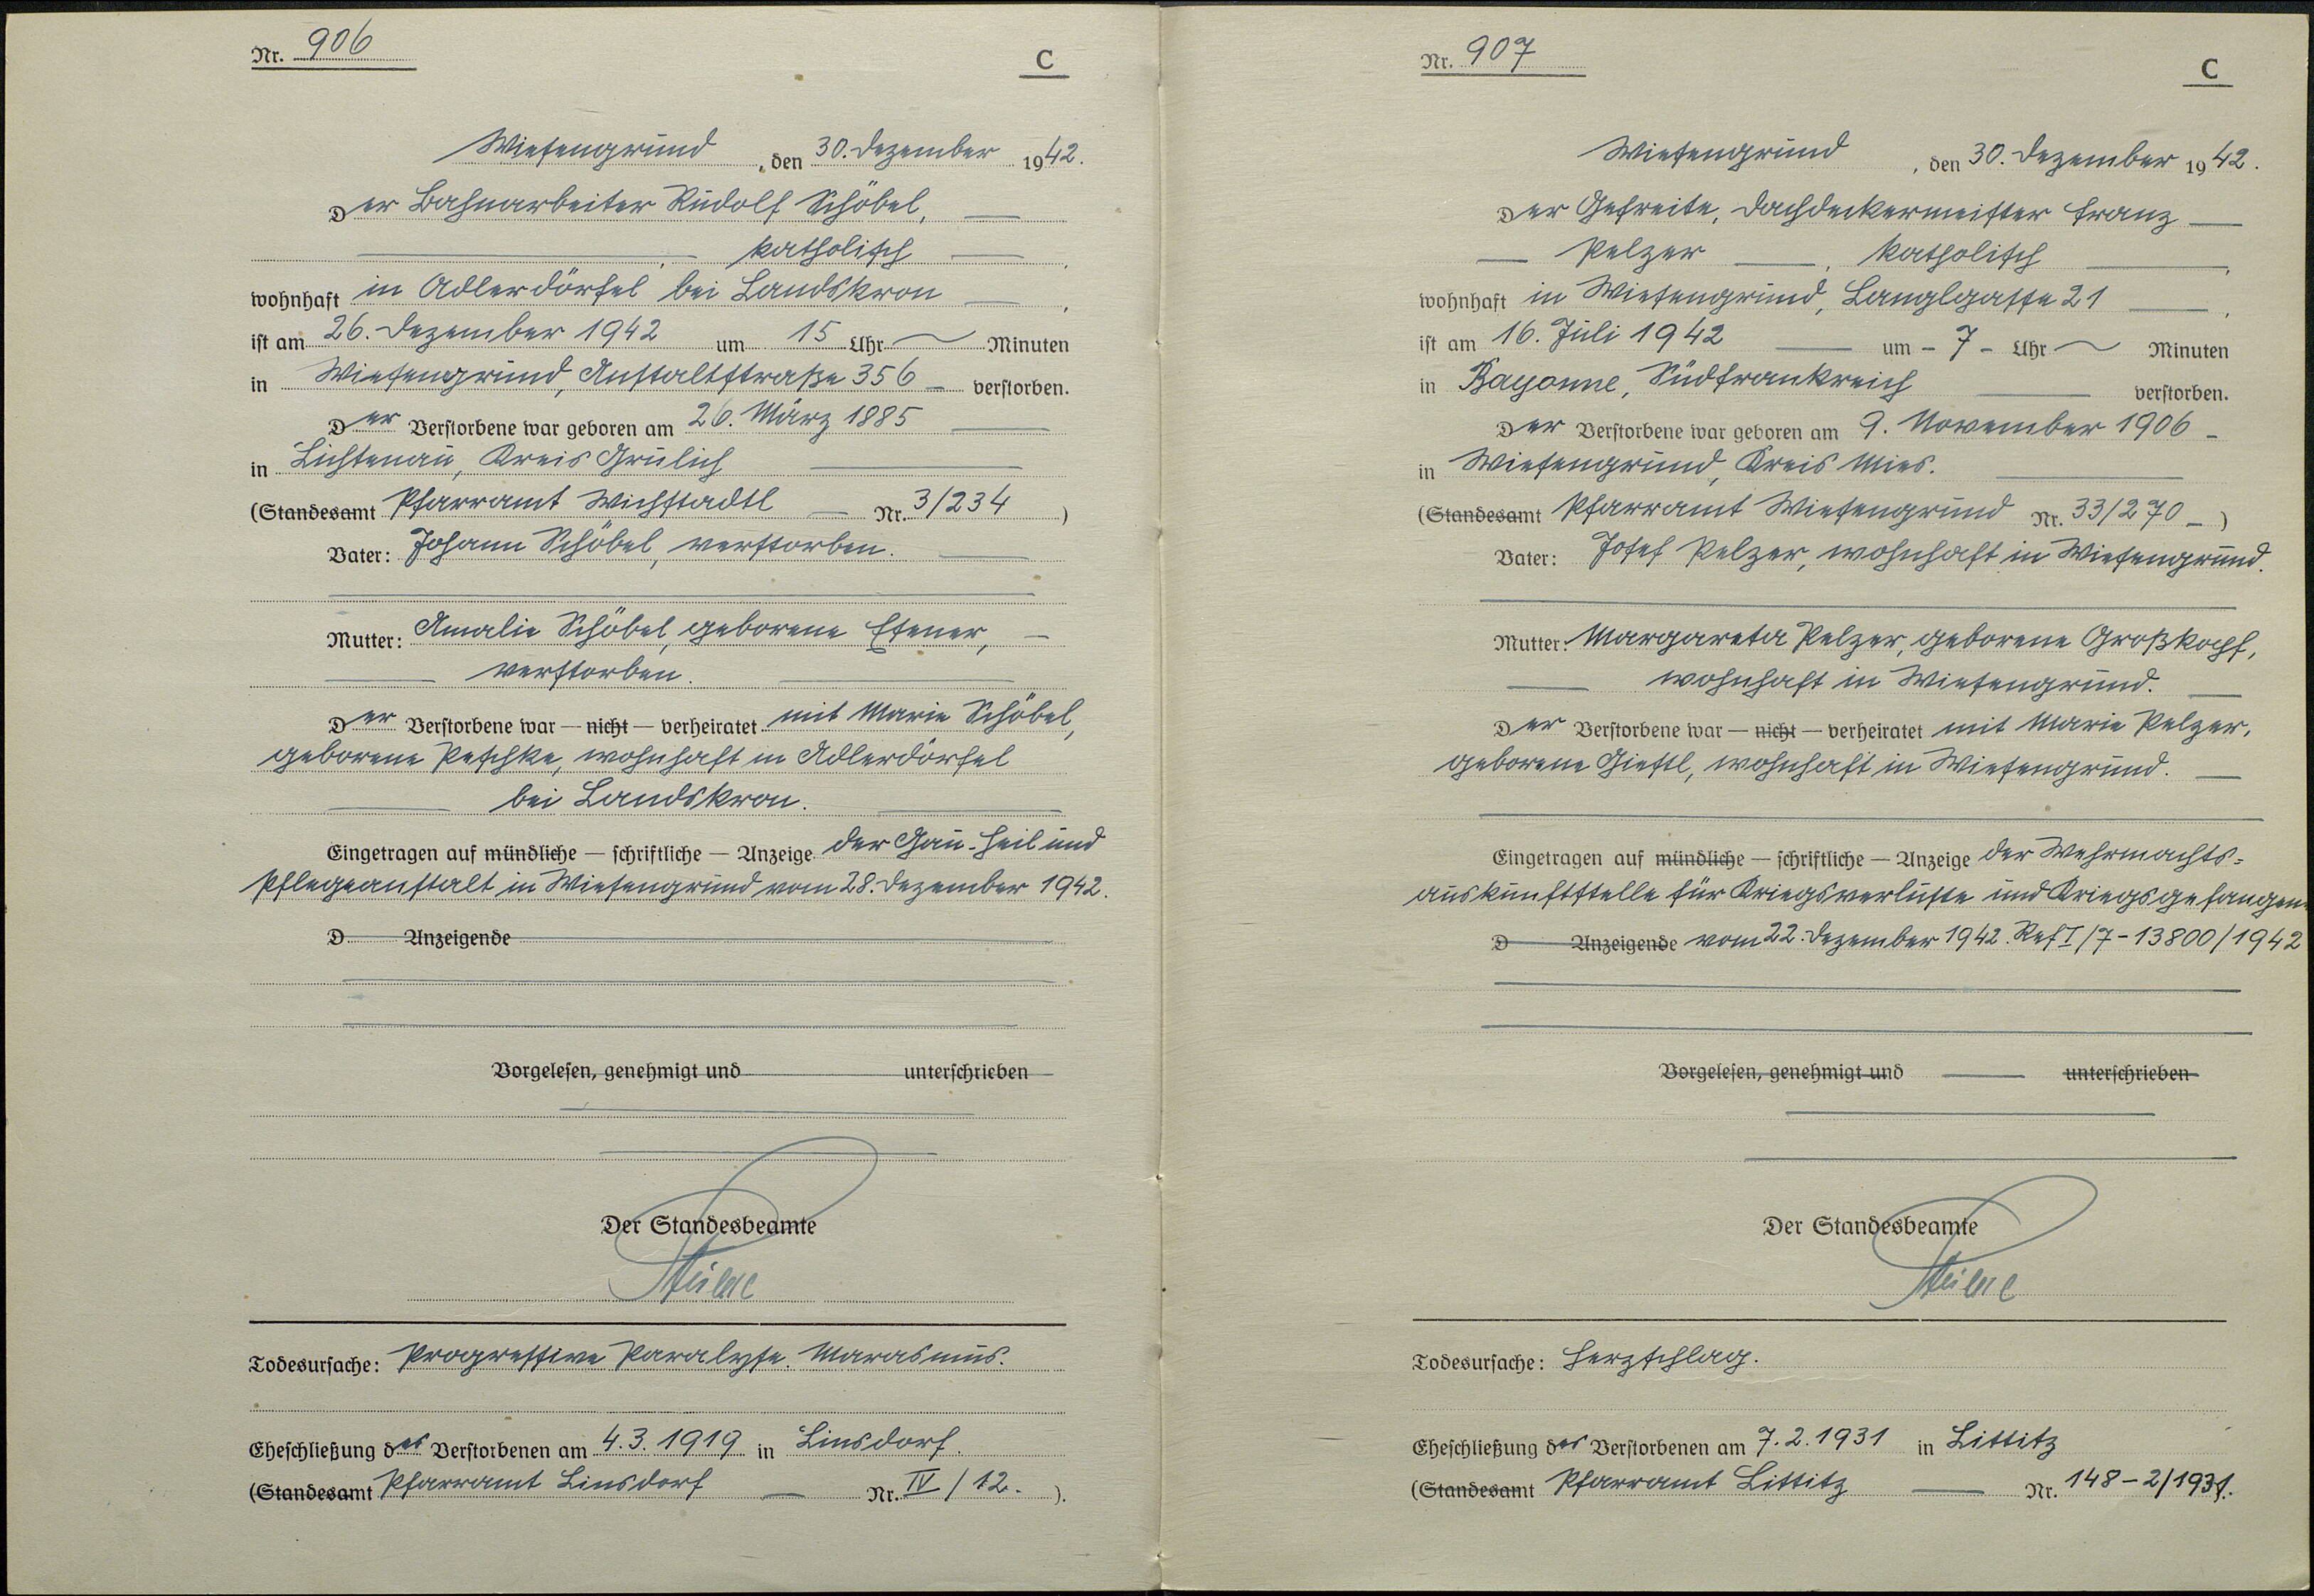 Nr. 906
C
Wiesengrund, den 30. Dezember 1942.
Der Bahnarbeiter Rudolf Schöbel,
katholisch,
wohnhaft in Adlerdörfel bei Landskron,
ist am 26. Dezember 1942 um 15 Uhr Minuten
in Wiesengrund, Anstaltstraße 356 verstorben.
Der Verstorbene war geboren am 26. März 1885
in Lichtenau, Kreis Grulich
(Standesamt Pfarramt Wichstadtl Nr. 3/234)
Vater: Johann Schöbel, verstorben.
Mutter: Amalie Schöbel, geborene Esener,
verstorben.
Der Verstorbene war — nicht — verheiratet mit Marie Schöbel,
geborene Peschke, wohnhaft in Adlerdörfel
bei Landskron.
Eingetragen auf mündliche — schriftliche — Anzeige der Gau-Heil und
Pflegeanstalt in Wiesengrund vom 28. Dezember 1942.
D Anzeigende
Vorgelesen, genehmigt und unterschrieben
Der Standesbeamte
Todesursache: Progressive Paralyse. Marasmus.
Eheschließung des Verstorbenen am 4.3.1919 in Linsdorf.
(Standesamt Pfarramt Linsdorf Nr. IV/12.).
Nr. 907
C
Wiesengrund, den 30. Dezember 1942.
Der Gefreite, Dachdeckermeister Franz
Pelzer, katholisch,
wohnhaft in Wiesengrund, Langlgasse 21,
ist am 16. Juli 1942 um - 7 - Uhr Minuten
in Bayonne, Südfrankreich verstorben.
Der Verstorbene war geboren am 9. November 1906
in Wiesengrund, Kreis Mies.
(Standesamt Pfarramt Wiesengrund Nr. 33/270)
Vater: Josef Pelzer, wohnhaft in Wiesengrund.
Mutter: Margareta Pelzer, geborene Großkopf,
wohnhaft in Wiesengrund.
Der Verstorbene war — nicht — verheiratet mit Marie Pelzer,
geborene Giestl, wohnhaft in Wiesengrund.
Eingetragen auf mündliche — schriftliche — Anzeige der Wehrmachts-
auskunftstelle für Kriegsverluste und Kriegsgefangene
D Anzeigende vom 22. Dezember 1942. Ref I/7-13800/1942
Vorgelesen, genehmigt und unterschrieben
Der Standesbeamte
Todesursache: Herzschlag.
Eheschließung des Verstorbenen am 7.2.1931 in Littitz
(Standesamt Pfarramt Littitz Nr. 148-2/1931.